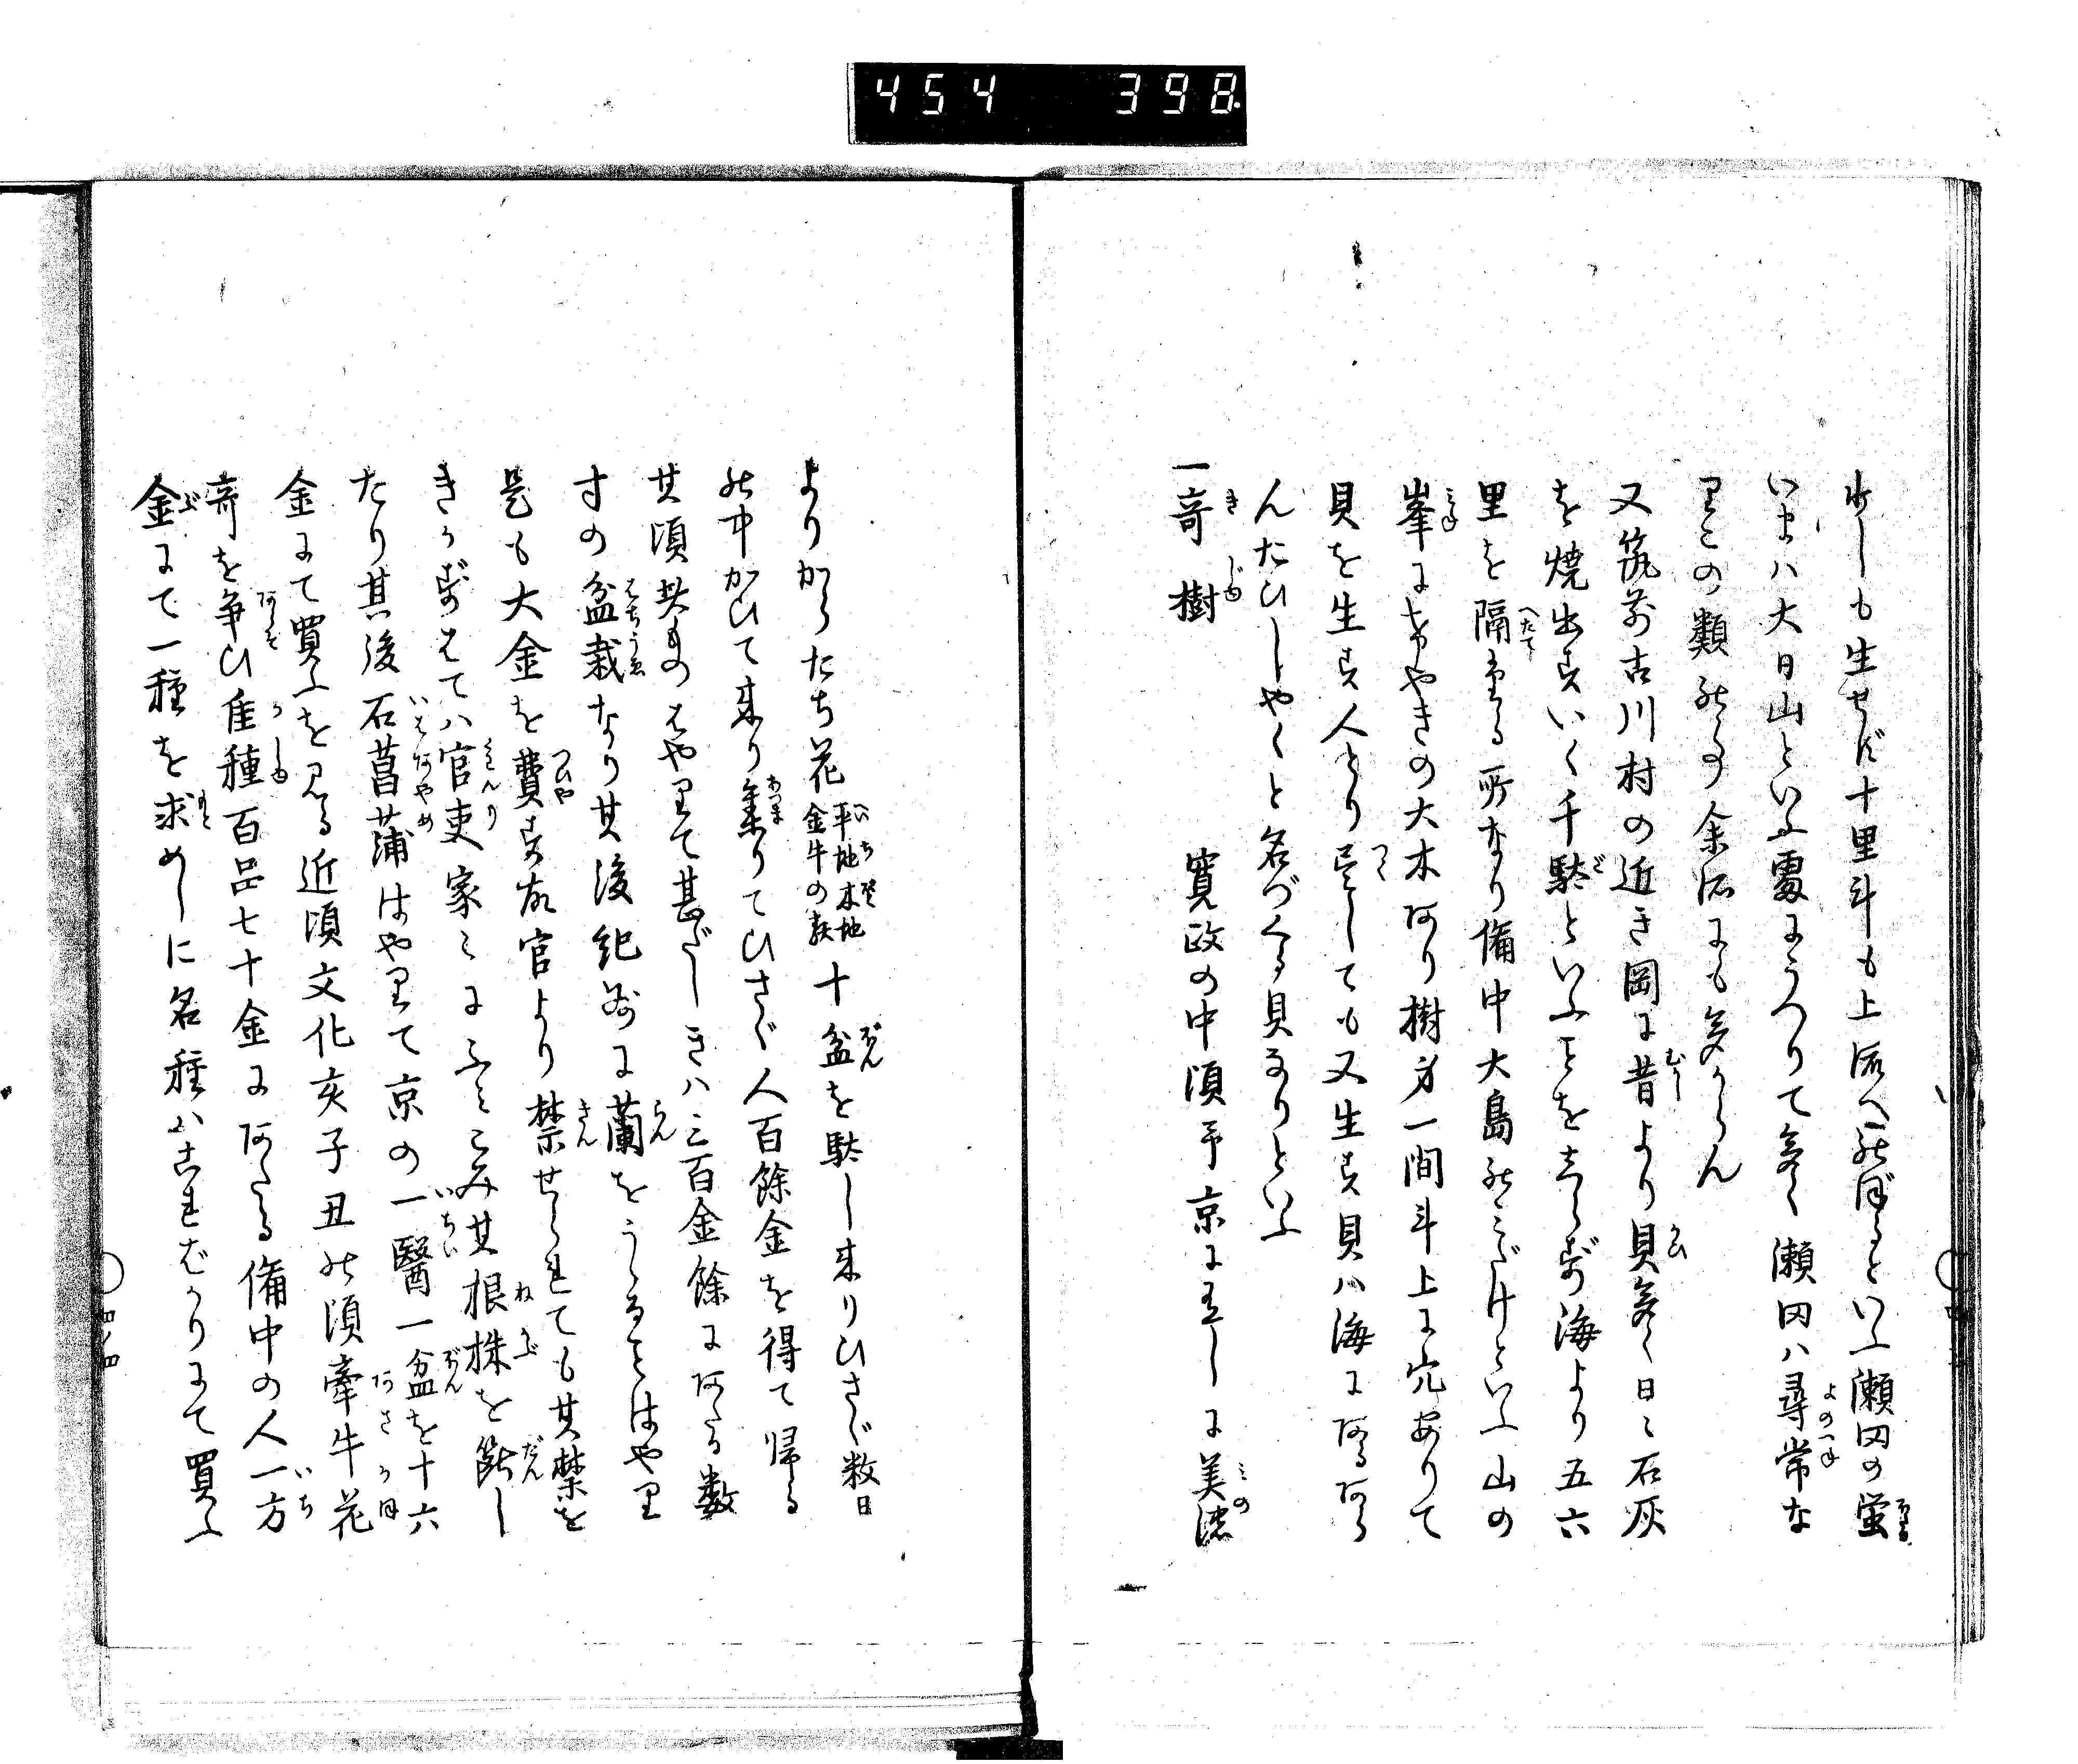 454 398
少しも生せず十里斗も上流へのぼるといふ瀬田の蛍
いまハ大日山といふ処にうつりて多く瀬田ハ尋常な
りこの類の事余流にも多からん
又筑前古川村の近き岡に昔より貝多く日々石灰
を焼出すいく千駄といふことをしらず海より五六
里を隔たる所なり備中大島のみだけといふ山の
峯にけやきの大木あり樹身一間斗上に穴ありて
貝を生ず人とり尽しても又生ず貝ハ海にあるあら
んたひしやくと名づくる貝なりといふ
一奇樹　寛政の中頃平京に在しに美濃
よりからたち花平地木地金牛の類十盆を駄し来りひさぐ数日
の中かひて来り集りてひさぐ人百餘金を得て帰る
其頃共ものはやりて甚だしきハ三百金餘にあたる数
寸の盆栽なり其後紀州に蘭をうゝることはやり
是も大金を費す故官より禁せられても其禁を
きかずはてハ官吏家々にふみこみ其根株を断し
たり其後石菖蒲はやりて京の一醫一盆を十六
金にて買ふを見る近頃文化亥子丑の頃牽牛花
奇を争ひ佳種百品七十金にあたる備中の人一方
金にて一種を求めしに名種ハこればかりにて買ふ